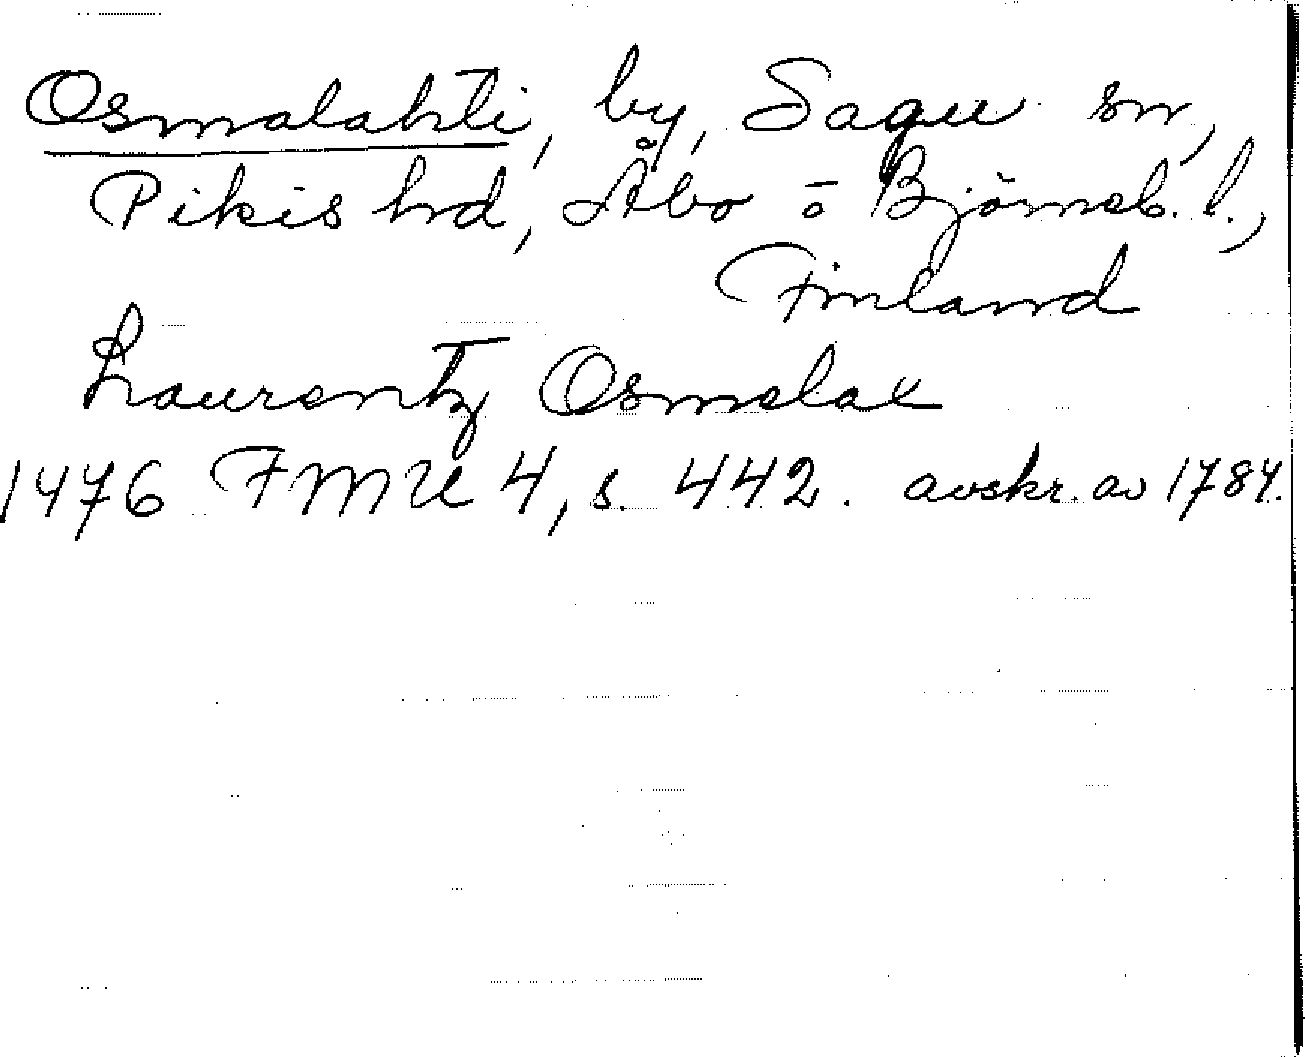 Osmalahti, by, Sagu sn,
Pikis hd, Åbo o Björneb. l.,
Finland
Laurentz Osmelax
1476 FMU 4, s. 442. avskr. av 1784.